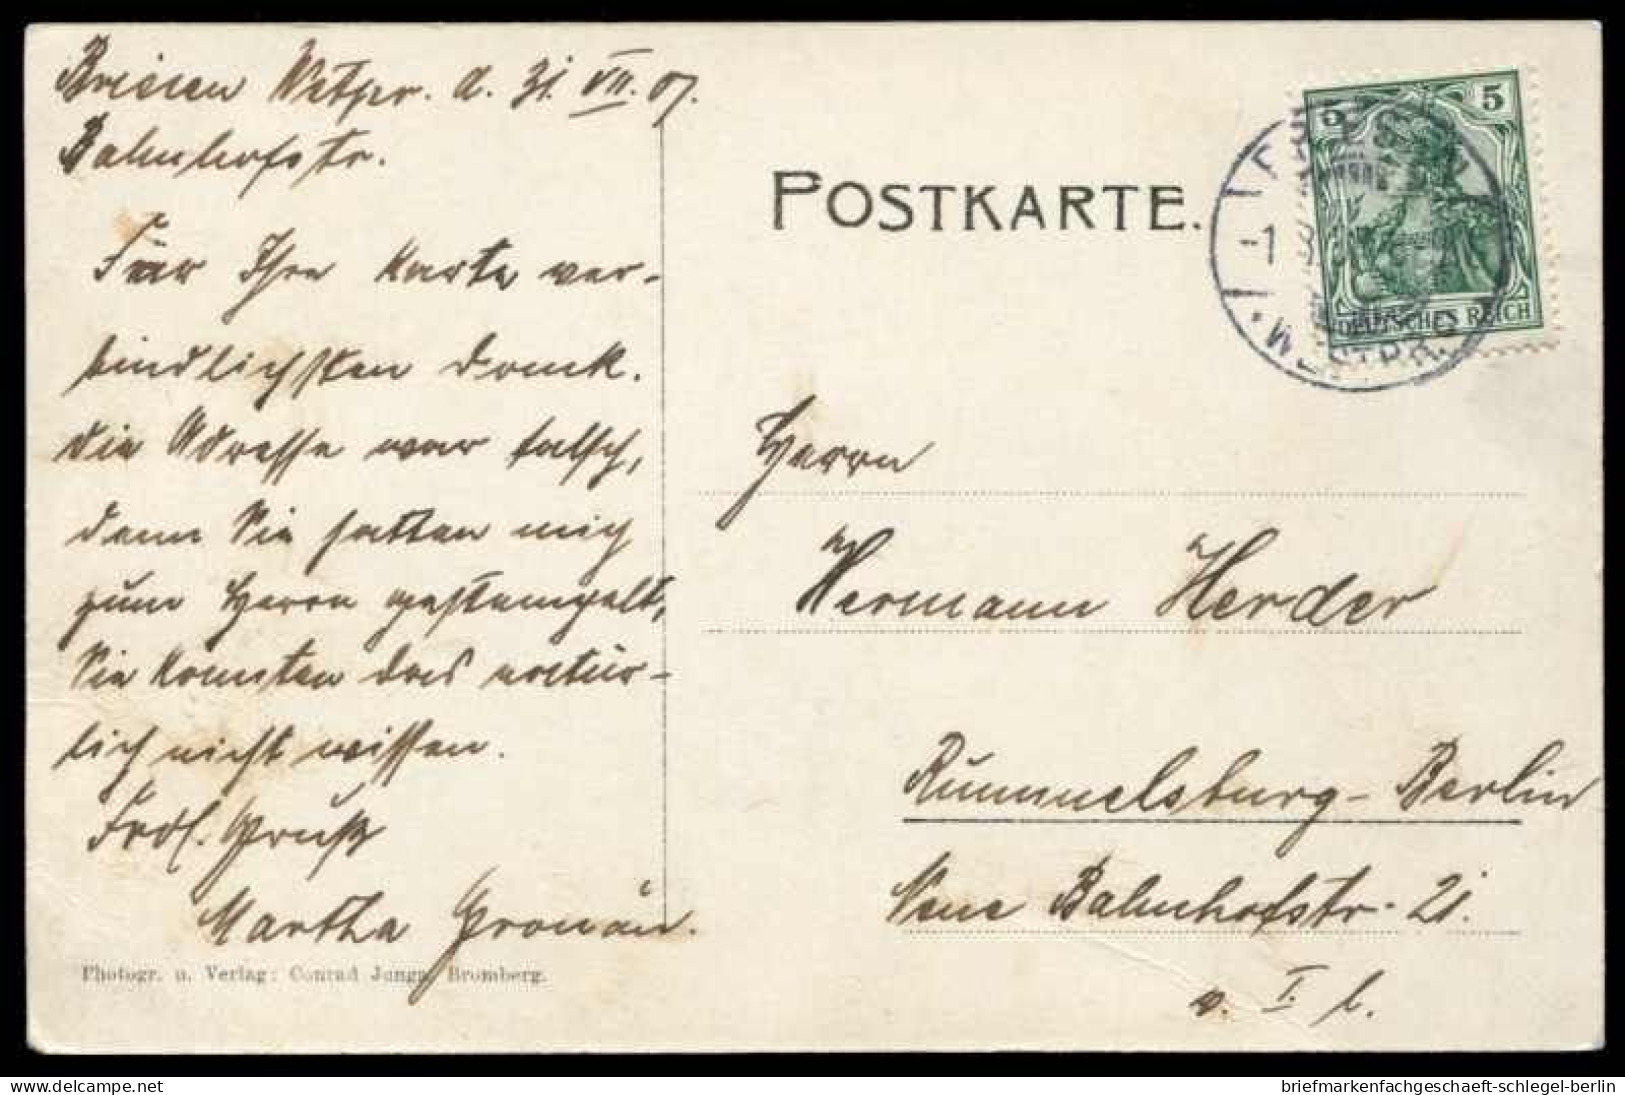 Briesen Wstpr. d. 31. VII. 07.
Bahnhofstr.
Für Ihre Karte ver-
bindlichsten Dank.
Die Adresse war falsch,
denn Sie hatten mich
zum Herrn gestempelt,
Sie konnten das natür-
lich nicht wissen.
Frdl. Gruß
Martha
Photogr. u. Verlag: Conrad Junga, Bromberg.
POSTKARTE.
5 5
DEUTSCHES REICH
-1 8
WESTPR.
Herrn
Hermann Herder
Rummelsburg-Berlin
Neue Bahnhofstr. 21.
v. I. l.
delcampe.net
briefmarkenfachgeschaeft-schlegel-berlin